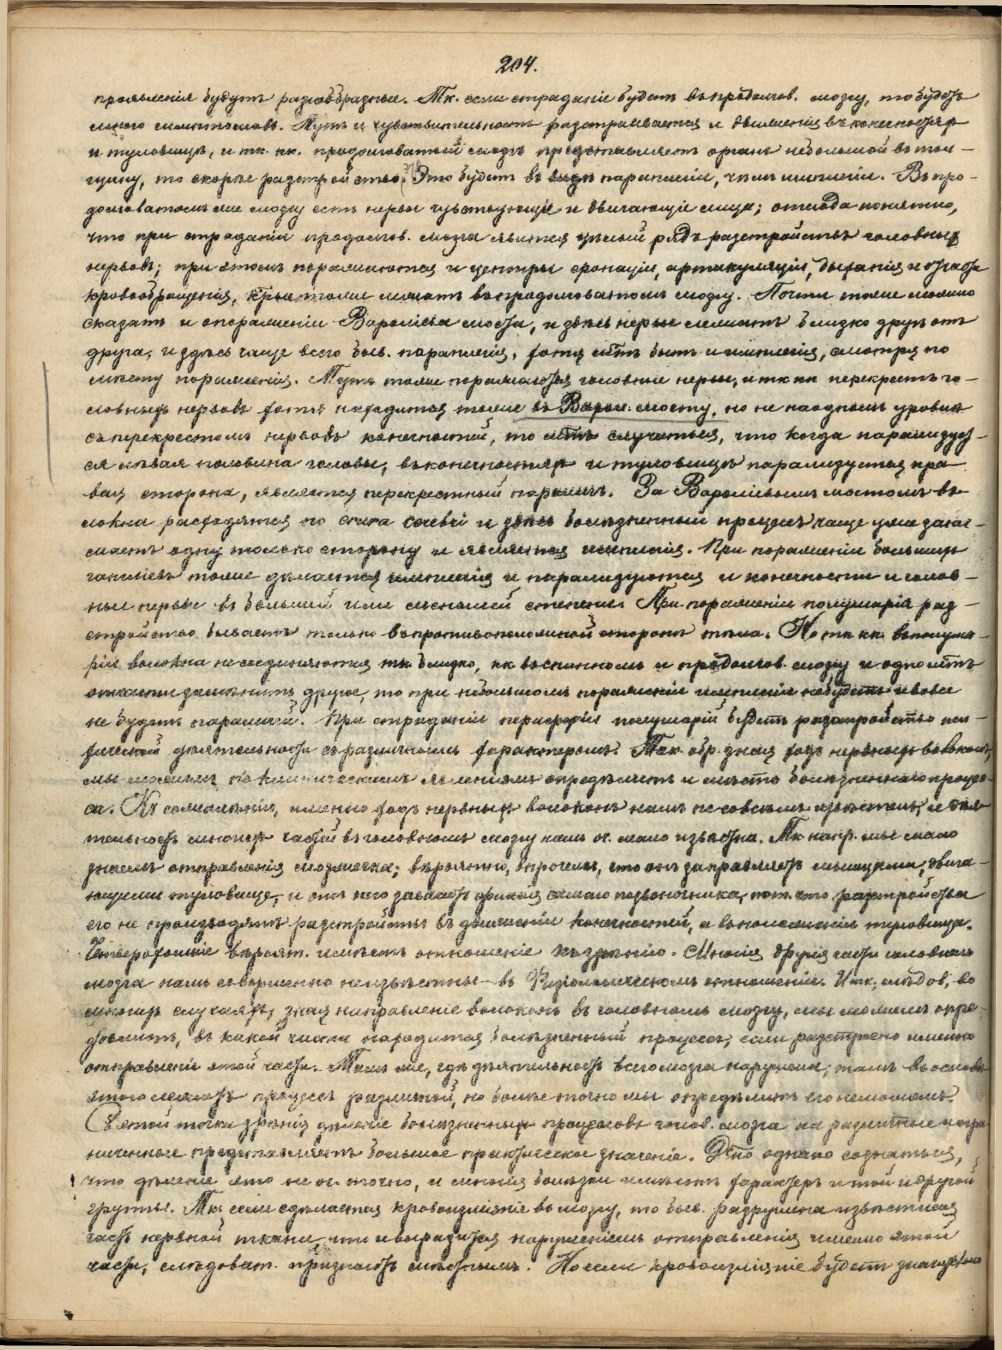 204.
проявленія будутъ разнообразные. Тк. если страданіе будетъ въ продолгов. мозгу, то будетъ
много симптомовъ. Тутъ и чувствительность разстраивается и движенія въ конечностяхъ
и туловищѣ, и тк. кк. продолговатый мозгъ представляетъ органъ небольшой въ тол-
щину, то скорѣе разстройство это будетъ въ видѣ параплегіи, чѣмъ гемиплегіи. Въ про-
долговатомъ же мозгу есть нервы чувствующіе и двигающіе лица; отсюда понятно,
что при страданіи продолгов. мозга явится цѣлый рядъ разстройствъ головныхъ
нервовъ; при этомъ поражаются и центры фонаціи, артикуляціи, дыханія и отчасти
кровообращенія, крые тоже лежатъ въ продолговатомъ мозгу. Почти тоже можно
сказать и о пораженіи Вароліева моста, и здѣсь нервы лежатъ близко другъ отъ
друга, и здѣсь чаще всего быв. параплегія, хотя мтъ быть и гемиплегія, смотря по
мѣсту пораженія. Тутъ тоже поражаются головные нервы, и тк кк перекрестъ го-
ловныхъ нервовъ хотя находится тоже въ Варол. мосту, но не на одномъ уровнѣ
съ перекрестомъ нервовъ конечностей, то мтъ случиться, что когда парализует-
ся лѣвая половина головы, въ конечностяхъ и туловищѣ парализуется пра-
вая сторона, является перекрестный параличъ. За Вароліевымъ мостомъ во-
локна расходятся по и здѣсь болѣзненный процессъ чаще уже зани-
маетъ одну только сторону и является гемиплегія. При пораженіи большихъ
гангліевъ тоже дѣлается гемиплегія и парализуются и конечности и голов-
ные нервы въ большей или меньшей степени. При пораженіи полушарія раз-
стройство бываетъ только въ противоположной сторонѣ тѣла. Но тк кк въ полуша-
ріи волокна не соединяются тк близко, кк въ спинномъ и продолгов. мозгу и одно мтъ
отчасти замѣнить другое, то при небольшомъ пораженіи гемиплегіи не будетъ и вовсе
не будетъ параличей. При страданіи периферіи полушарій будетъ разстройство пси-
хической дѣятельности съ различнымъ характеромъ. Так. обр. зная ходъ нервныхъ волоконъ,
мы можемъ по клиническимъ явленіямъ опредѣлить и мѣсто болѣзненнаго процес-
са. Къ сожалѣнію, именно ходъ нервныхъ волоконъ намъ не совсѣмъ извѣстенъ, и дѣя-
тельность многихъ частей въ головномъ мозгу намъ оч. мало извѣстна. Тк напр. мы мало
знаемъ отправленія мозжечка; вѣроятно, впрочемъ, что онъ заправляетъ мышцами, двига-
ющими туловище, и отъ него зависитъ функція самаго позвоночника, пот. что разстройства
его не производятъ разстройствъ въ движеніи конечностей, а въ положеніи туловища.
Четверохолміе вѣроят. имѣетъ отношеніе къ зрѣнію. Многія другія части головнаго
мозга намъ совершенно неизвѣстны въ физіологическомъ отношеніи. И тк, слѣдов, во
многихъ случаяхъ, зная направленіе волоконъ въ головномъ мозгу, мы можемъ опре-
дѣлить, въ какой части находится болѣзненный процессъ, если разстроено именно
отправленіе этой части. Тамъ же, гдѣ дѣятельность всего мозга нарушена, тамъ въ основѣ
этого лежитъ процессъ разлитой, но болѣе точно мы опредѣлить его не можемъ.
Съ этой точки зрѣнія дѣленіе болѣзненныхъ процессовъ голов. мозга на разлитые и огра-
ниченные представляетъ большое практическое значеніе. Дно однако сознаться,
что дѣленіе это не оч. точно, и многія болѣзни имѣютъ характеръ и той и другой
группы. Тк. если сдѣлается кровоизліяніе въ мозгу, то быв. разрушена извѣстная
часть нервной ткани, что и выразится нарушеніемъ отправленія именно этой
части, слѣдоват. признаютъ мѣстнымъ. Но если кровоизліяніе будетъ значительно